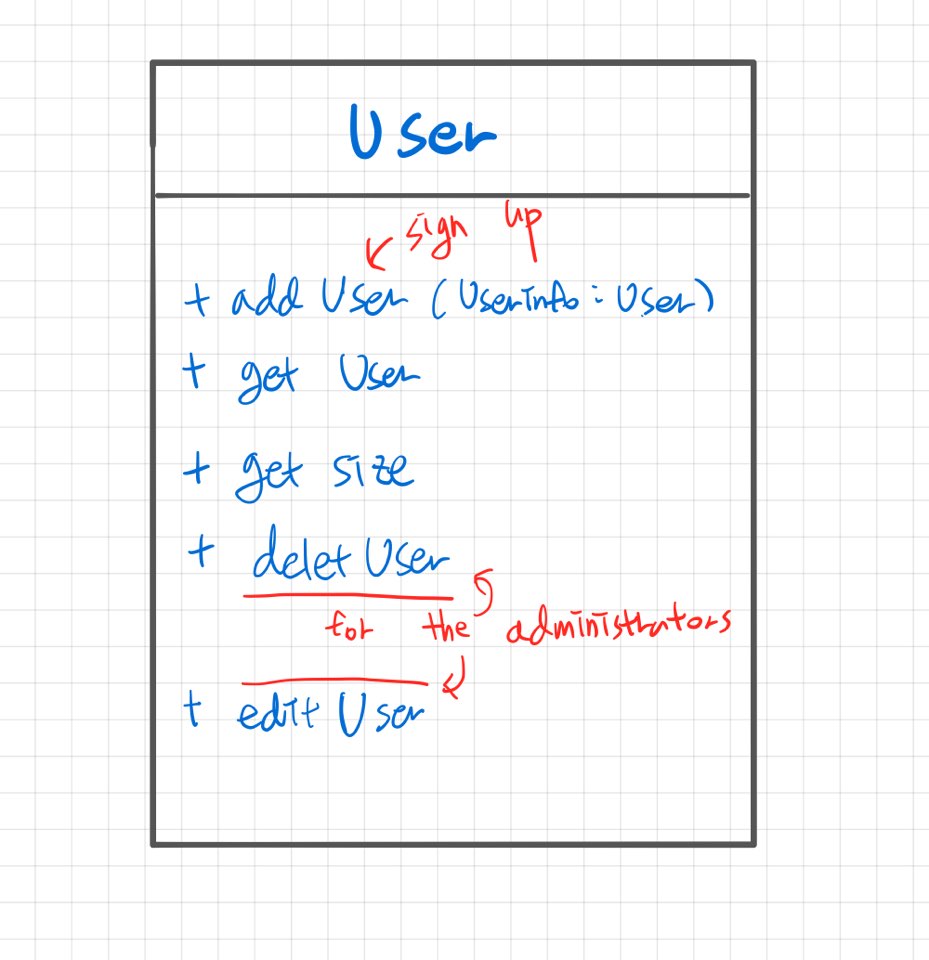 User
sign up
+ add User (UserInfo : User)
+ get User
+ get size
+ delet User
for the administrators
+ edit User